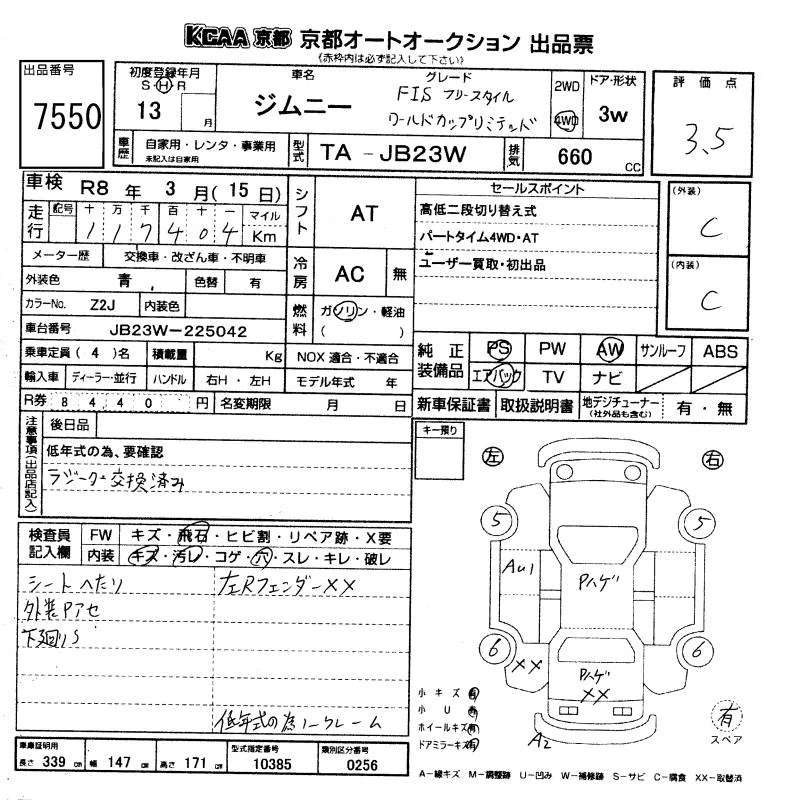 KCAA 京都 京都オートオークション 出品票
(赤枠内は必ず記入して下さい)
出品番号
7550
初度登録年月
S・H・R
13 月
車名
ジムニー
グレード
FIS フリースタイル
ワールドカップリミテッド
2WD
4WD
ドア・形状
3W
評価点
3.5
車歴
自家用・レンタ・事業用
未記入は自家用
型式
TA - JB23W
排気
660 CC
車検 R8 年 3 月( 15 日)
走行
記号 十 万 千 百 十 一 マイル
1 1 7 4 0 4 Km
メーター歴 交換車・改ざん車・不明車
外装色 青 色替 有
カラーNo. Z2J 内装色
車台番号 JB23W-225042
乗車定員 ( 4 )名 積載量 Kg
輸入車 ディーラー・並行 ハンドル 右H・左H
R券 8 4 4 0 円 名変期限 月 日
シフト AT
冷房 AC 無
燃料 ガソリン・軽油
( )
NOX 適合・不適合
モデル年式 年
セールスポイント
高低二段切り替え式
パートタイム4WD・AT
ユーザー買取・初出品
(外装)
C
(内装)
C
純正装備品
PS PW AW サンルーフ ABS
エアバック TV ナビ
新車保証書 取扱説明書 地デジチューナー(社外品も含む) 有・無
注意事項(出品店記入)
後日品
低年式の為、要確認
ラジーター交換済み
キー預り
左
右
検査員記入欄
FW キズ・飛石・ヒビ割・リペア跡・X要
内装 キズ・汚レ・コゲ・穴・スレ・キレ・破レ
シートへたり
左RフェンダーXX
外装Pアセ
下廻りS
低年式の為ノークレーム
5
5
AU1
Pハゲ
6
6
XX
Pハゲ
XX
A2
小キズ 有
小U 有
ホイールキズ 有
ドアミラーキズ 有
有
スペア
車庫証明用
長さ 339 cm 幅 147 cm 高さ 171 cm
型式指定番号
10385
類別区分番号
0256
A-線キズ M-調整跡 U-凹み W-補修跡 S-サビ C-腐食 XX-取替済